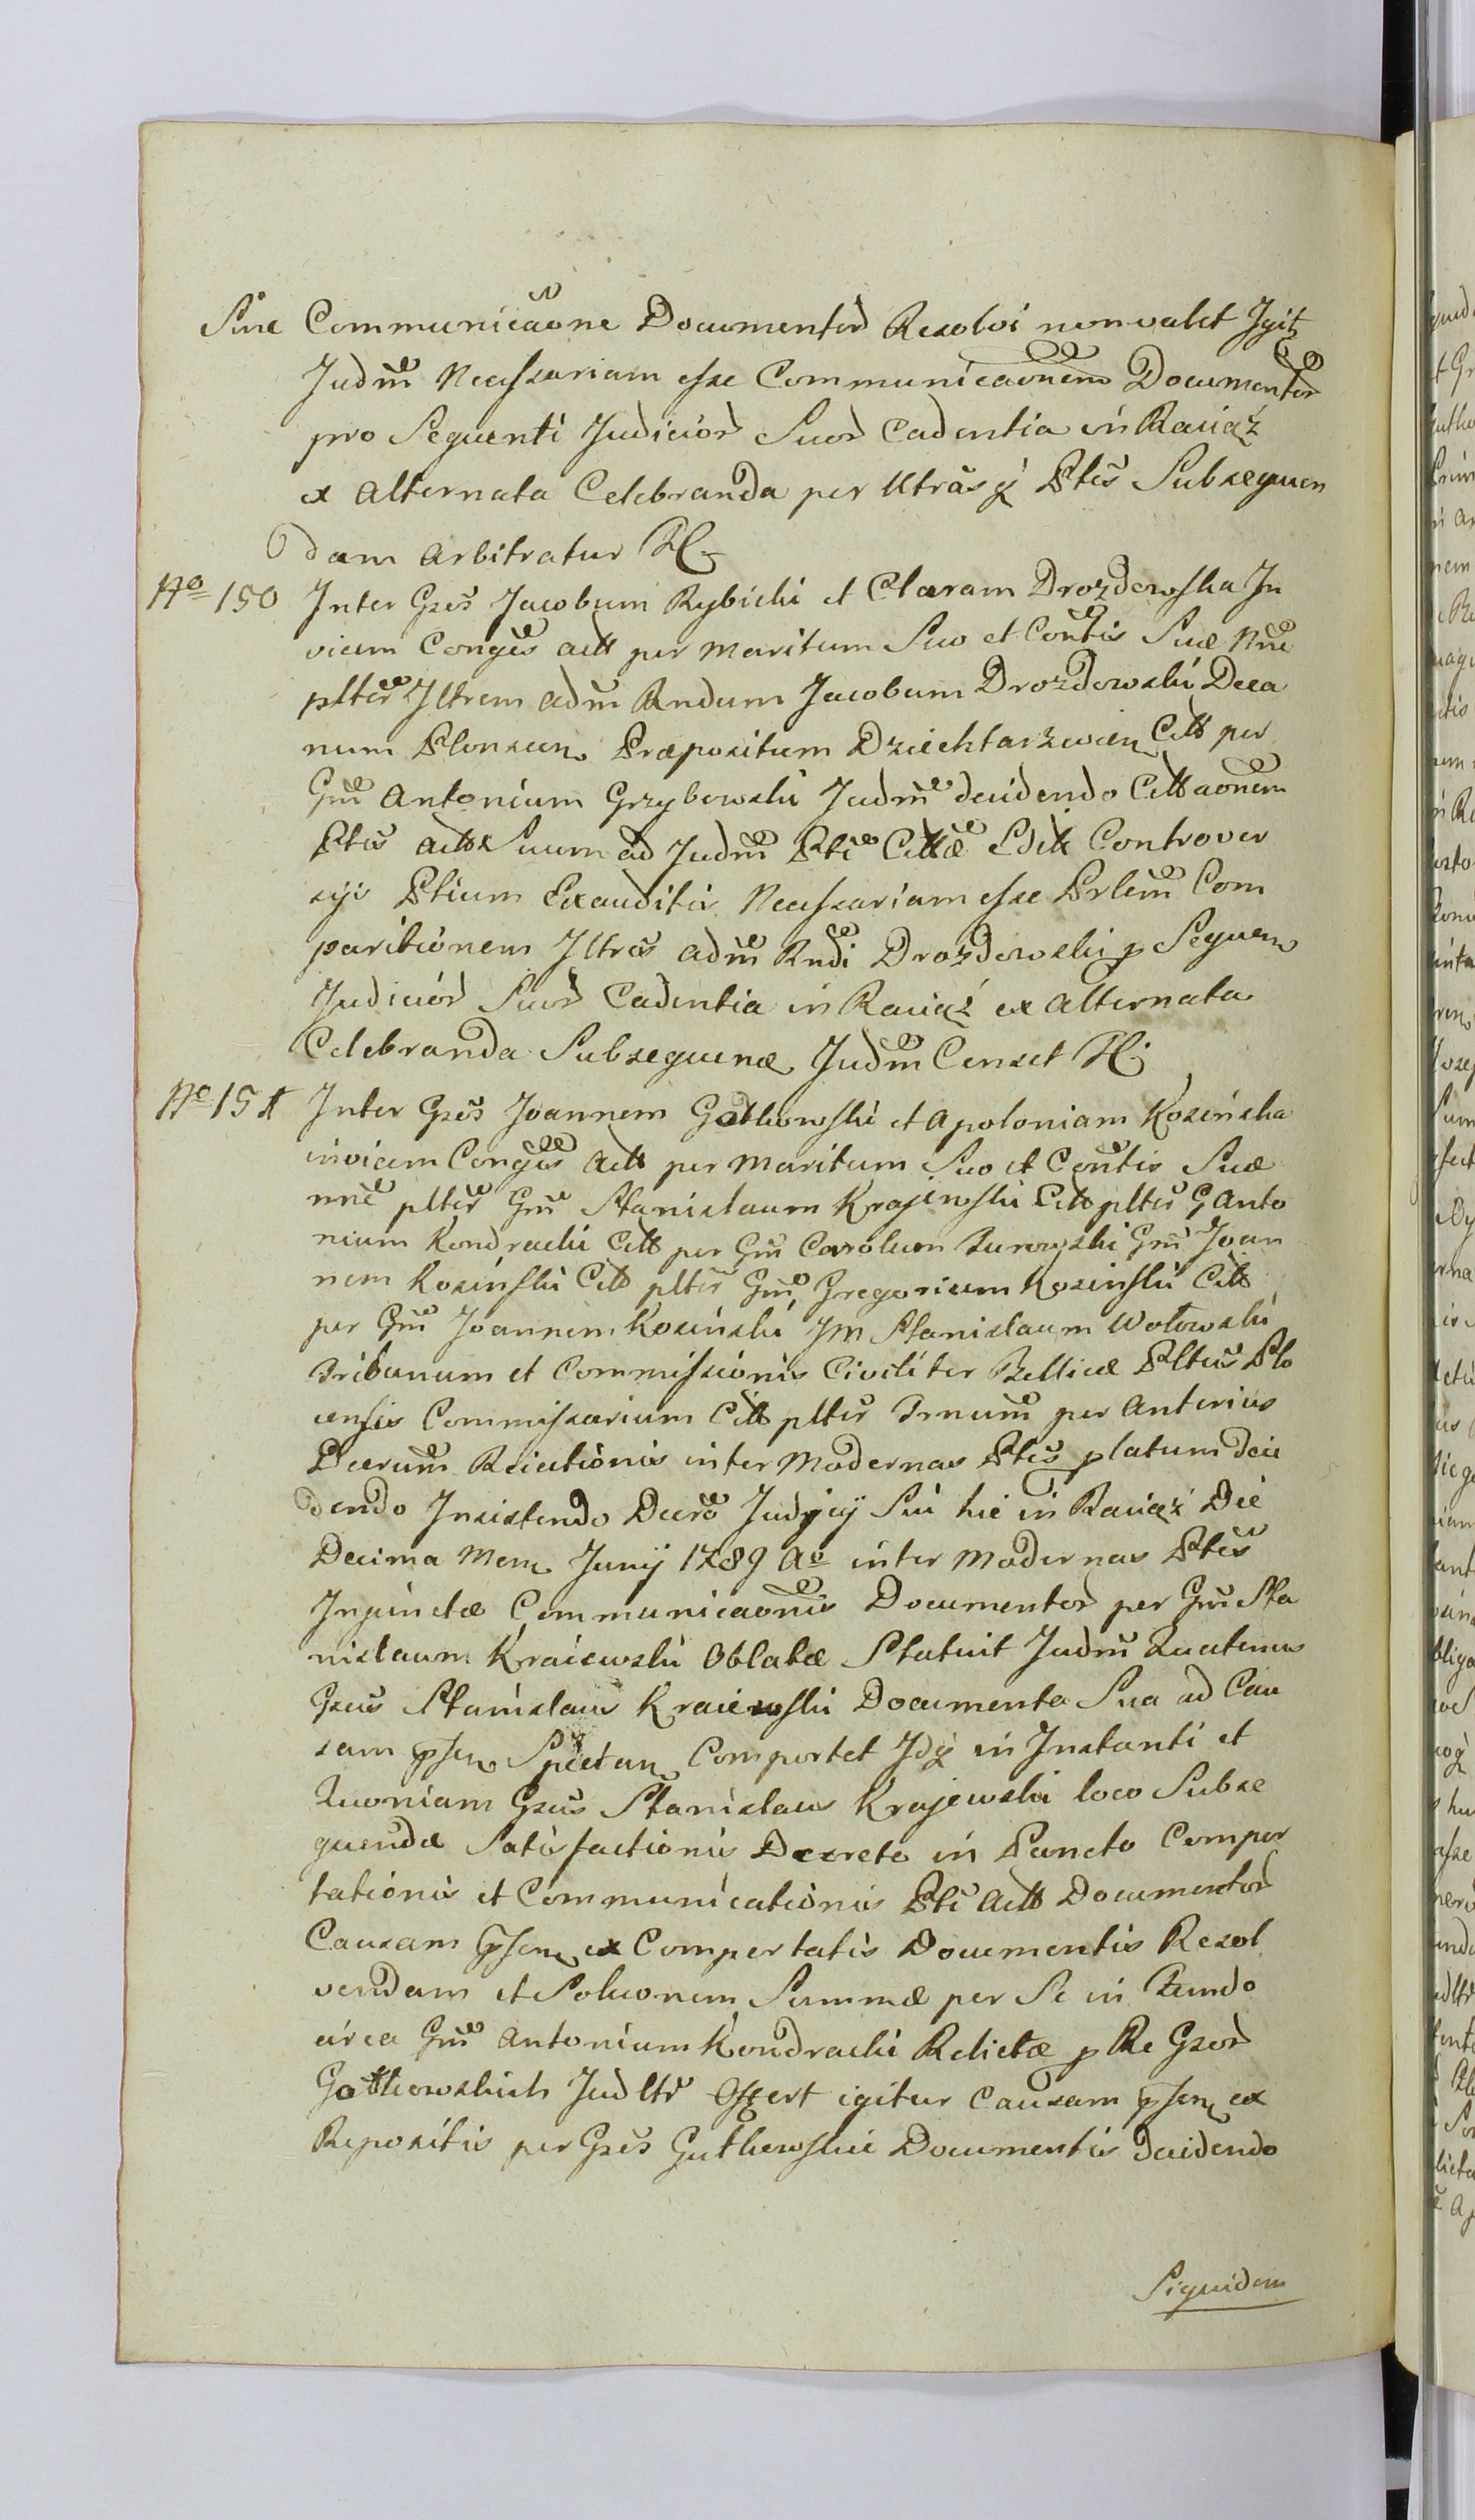 Sine Communicaone Documentor Resolvi non valet Igit
Judm Necessariam esse Communicaonem Documentor
pro Sequenti Judicior Suor Cadentia in Raciąż
ex Alternata Celebranda per Utrasq Ptes Subsequen
dam Arbitratur
No 150 Inter Gsos Jacobum Rybicki et Claram Drozdowska In
vicem Conges actt per Maritum Suo et Contis Suæ Nne
plter Illrem Adm Rndum Jacobum Drozdowski Deca
num Plonscen Præpositum Dziektarzevien Citt per
Gm Antonium Grzybowski Judm decidendo Cittaonem
Ptis actt Suum ad Judm Pti Cittæ Edit Controver
syis Ptium Exauditis Necessariam esse Prlem Com
paritionem Illris adm Rndi Drozdowski p Sequen
Judicior Suor Cadentia in Raciąż ex Alternata
Celebranda Subsequenæ Judm Censet
No 151 Inter Gsos Joannem Gotkowski et Apoloniam Kosinska
invicem Conges Actt per Maritum Suo et Contis Suæ
nne plter Gm Stanislaum Krajewski Citt plter G Anto
nium Kondracki Citt per Gm Carolum Gm Joan
nem Kosinski Citt plter Gm Gregorium Kosinski Citt
per Gm Joannem Kosinski JM Stanislaum Wołowski
Tribunum et Commissionis Civiliter Bellicæ Pltus Plo
censis Commissarium Citt plter Trnum per Anterius
Decrum Reiectionis inter Modernas Ptes platum Deci
dendo Insistendo Decro Judycij Sui hic in Raciąż Die
Decima Men Junij 1789 Ao inter Modernas Ptes
Injunctæ Communicaonis Documentor per Gm Sta
nislaum Kraiewski Oblatæ Statuit Judm Quatenus
Gsus Stanislaus Kraiewski Documenta Sua ad Cau
sam pssen Spectan Comportet Idq in Instanti et
Quoniam Gsus Stanislaus Krajewski loco Subse
quendæ Satisfactionis Decreto in Puncto Compor
tationis et Communicationis Pti Actt Documentor
Causam pssen ex Comportatis Documentis Resol
vendam et Soluonem Summæ per Se in Fundo
circa Gm Antonium Kondracki Relictæ p Re Gsor
Gotkowskich Judltr Offert igitur Causam pssen ex
Repositis per Gsos Gutkowskie Documentis Decidendo
Siquidem